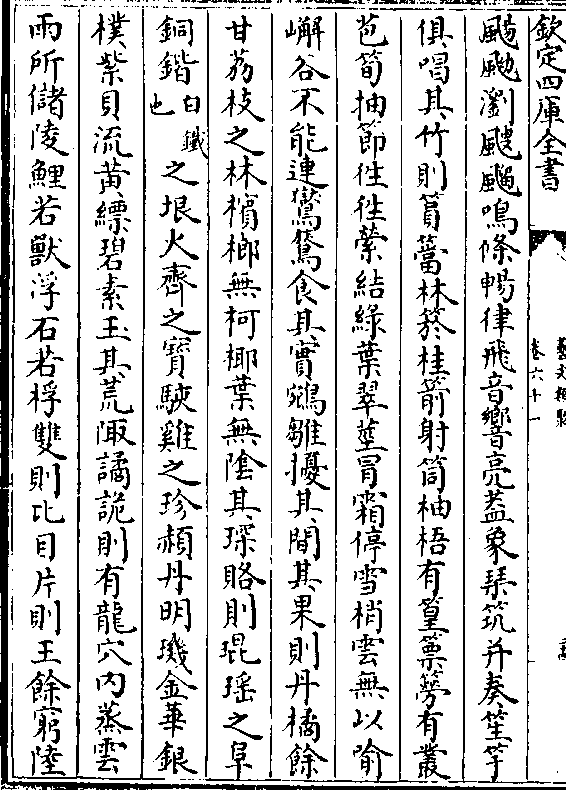 欽定四庫全書
卷六十一
颺䬀瀏颼飀鳴條暢律飛音響亮蓋象琴筑并奏笙竽
俱唱其竹則篔簹林箊桂箭射筒柚梧有篁篻簩有叢
苞筍抽節徃徃縈結綠葉翠莖冒霜停雪梢雲無以喻
嶰谷不能連鸑鷟食其實鵷鶵擾其間其果則丹橘餘
甘荔枝之林檳榔無柯椰葉無陰其琛賂則琨瑤之阜
銅鍇白鐵也之垠火齊之寶駭雞之珍赬丹明璣金華銀
樸紫貝流黄縹碧素玉其荒陬譎詭則有龍穴内蒸雲
雨所儲陵鯉若獸浮石若桴雙則比目片則王餘窮陸